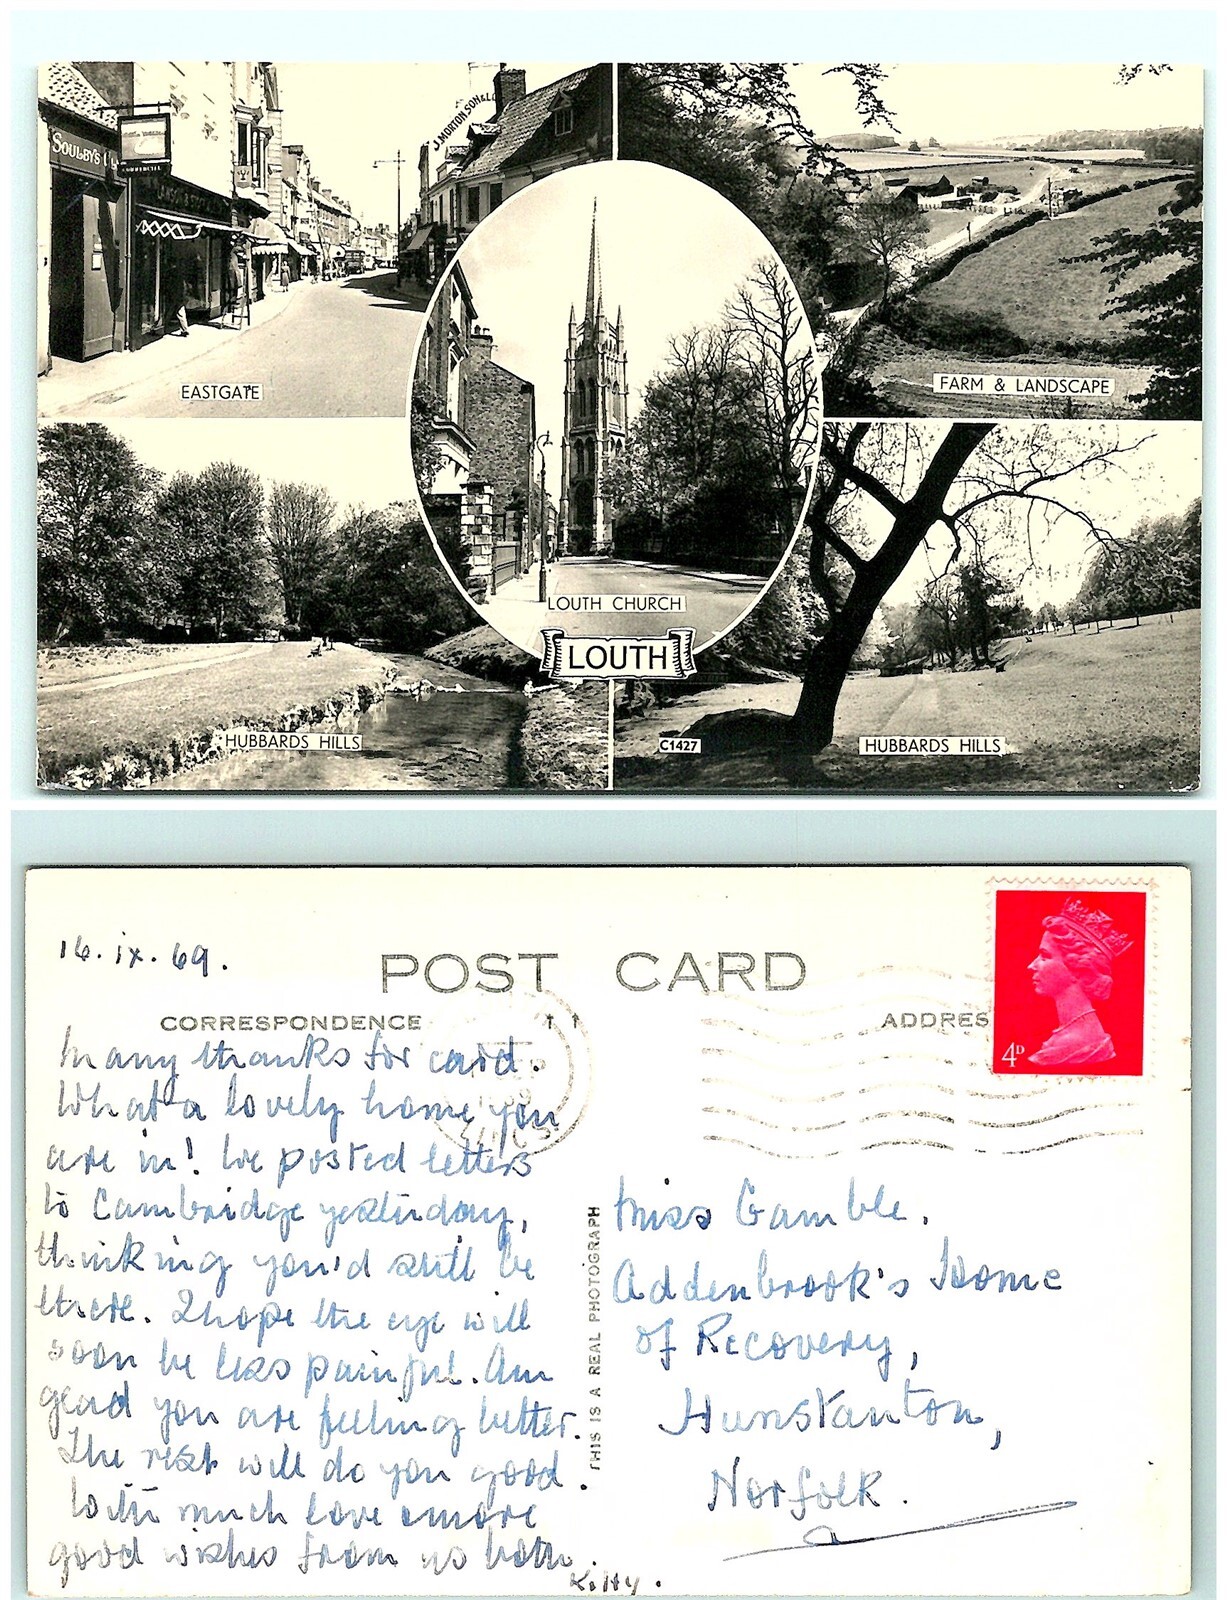 SOULBY'S
J. MORTON, SON & L
EASTGATE
FARM & LANDSCAPE
LOUTH CHURCH
LOUTH
HUBBARDS HILLS
C1427
HUBBARDS HILLS
16.ix.69.
POST CARD
CORRESPONDENCE
ADDRES
4D
Many thanks for card.
What a lovely home you
are in! We posted letters
to Cambridge yesterday,
thinking you'd still be
there. I hope the eye will
soon be less painful. Am
glad you are feeling better.
The rest will do you good.
With much love & more
good wishes from us both.
Kitty.
THIS IS A REAL PHOTOGRAPH
Miss Gamble.
Addenbrook's Home
of Recovery,
Hunstanton,
Norfolk.